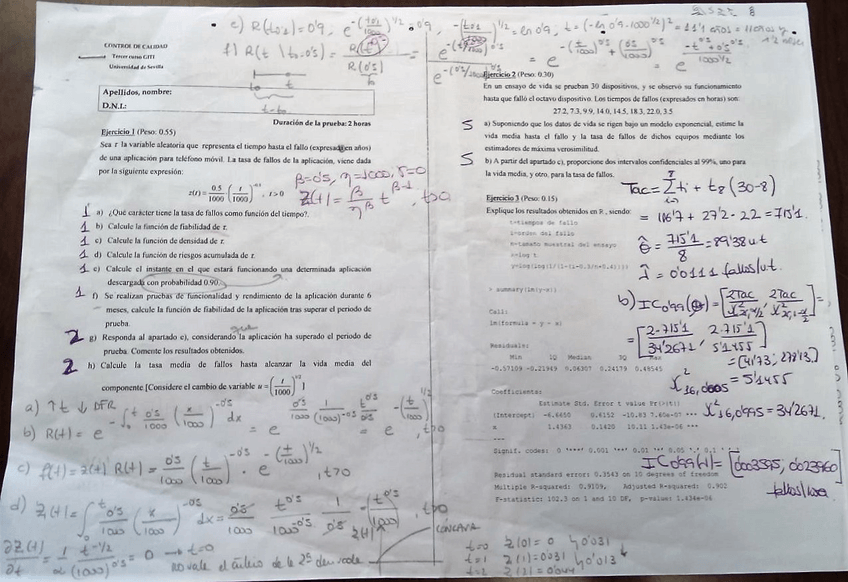 e) R(t₀'₁) = 0'9, e^-(t0'1/1000)^1/2 = 0'9, -(t0'1/1000)^1/2 = ln 0'9, t = (-ln 0'9·1000^1/2)² = 11'1 años = 11 años y
1'2 meses
f) R(t | t₀=0'5) = R(t) / R(0'5) =
CONTROL DE CALIDAD
Tercer curso GITI
Universidad de Sevilla
Apellidos, nombre:
D.N.I.:
Duración de la prueba: 2 horas
Ejercicio 1 (Peso: 0.55)
Sea τ la variable aleatoria que representa el tiempo hasta el fallo (expresada en años)
de una aplicación para teléfono móvil. La tasa de fallos de la aplicación, viene dada
por la siguiente expresión:
β=0'5, η=1000, γ=0
z(t) = 0.5/1000 (t/1000)^-0.5, t > 0
Z(t) = β/η^β t^β-1, t>0
1 a) ¿Qué carácter tiene la tasa de fallos como función del tiempo?.
1 b) Calcule la función de fiabilidad de τ.
1 c) Calcule la función de densidad de τ.
1 d) Calcule la función de riesgos acumulada de τ.
1 e) Calcule el instante en el que estará funcionando una determinada aplicación
descargada con probabilidad 0.90.
1 f) Se realizan pruebas de funcionalidad y rendimiento de la aplicación durante 6
meses, calcule la función de fiabilidad de la aplicación tras superar el periodo de
prueba.
que
2 g) Responda al apartado e), considerando la aplicación ha superado el periodo de
prueba. Comente los resultados obtenidos.
2 h) Calcule la tasa media de fallos hasta alcanzar la vida media del
componente [Considere el cambio de variable u = (t/1000)^1/2]
a) ↑t ↓ DFR
b) R(t) = e^-∫₀ᵗ 0'5/1000 (x/1000)^-0'5 dx = e = e^-(t/1000)^1/2, t>0
c) f(t) = z(t) R(t) = 0'5/1000 (t/1000)^-0'5 · e^-(t/1000)^1/2, t>0
d) Z(t) = ∫₀ᵗ 0'5/1000 (x/1000)^-0'5 dx = 0'5/1000 t^0'5/1000^-0'5 1/0'5 = (t/1000)^0'5, t>0
∂Z(t)/∂t = = 0 → t=0
no vale el criterio de la 2ª derivada
Z(t)
CÓNCAVA
t=0 Z(0) = 0
t=1 Z(1) = 0'031
t=2 Z(2) = 0'044
0'031
0'013
Ejercicio 2 (Peso: 0.30)
En un ensayo de vida se prueban 30 dispositivos, y se observó su funcionamiento
hasta que falló el octavo dispositivo. Los tiempos de fallos (expresados en horas) son:
27.2, 7.3, 9.9, 14.0, 14.5, 18.3, 22.0, 3.5
5 a) Suponiendo que los datos de vida se rigen bajo un modelo exponencial, estime la
vida media hasta el fallo y la tasa de fallos de dichos equipos mediante los
estimadores de máxima verosimilitud.
5 b) A partir del apartado c), proporcione dos intervalos confidenciales al 99%, uno para
la vida media, y otro, para la tasa de fallos.
Tac = Σ ti + t8 (30-8)
= 116'7 + 27'2·22 = 715'1
θ̂ = 715'1/8 = 89'38 u.t
λ̂ = 0'0111 fallos/u.t.
Ejercicio 3 (Peso: 0.15)
Explique los resultados obtenidos en R, siendo:
t=tiempos de fallo
i=orden del fallo
n=tamaño muestral del ensayo
x=log t
y=log(log(1/(1-(i-0.3/n+0.4))))
> summary(lm(y~x))
Call:
lm(formula = y ~ x)
Residuals:
Min 1Q Median 3Q Max
-0.57109 -0.21949 0.06307 0.24179 0.48545
Coefficients:
Estimate Std. Error t value Pr(>|t|)
(Intercept) -6.6650 0.6152 -10.83 7.60e-07 ***
x 1.4363 0.1420 10.11 1.43e-06 ***
---
Signif. codes: 0 '***' 0.001 '**' 0.01 '*' 0.05 '.' 0.1 ' ' 1
Residual standard error: 0.3543 on 10 degrees of freedom
Multiple R-squared: 0.9109, Adjusted R-squared: 0.902
F-statistic: 102.3 on 1 and 10 DF, p-value: 1.434e-06
b) IC0'99(θ) = [2Tac/χ², 2Tac/χ²] =
= [2·715'1/34'2671, 2·715'1/5'1455]
= (41'73, 277'13)
χ²16,0'005 = 5'1455
χ²16,0'995 = 34'2671
IC0'99(λ) = [0'003595, 0'023960]
fallos/hora